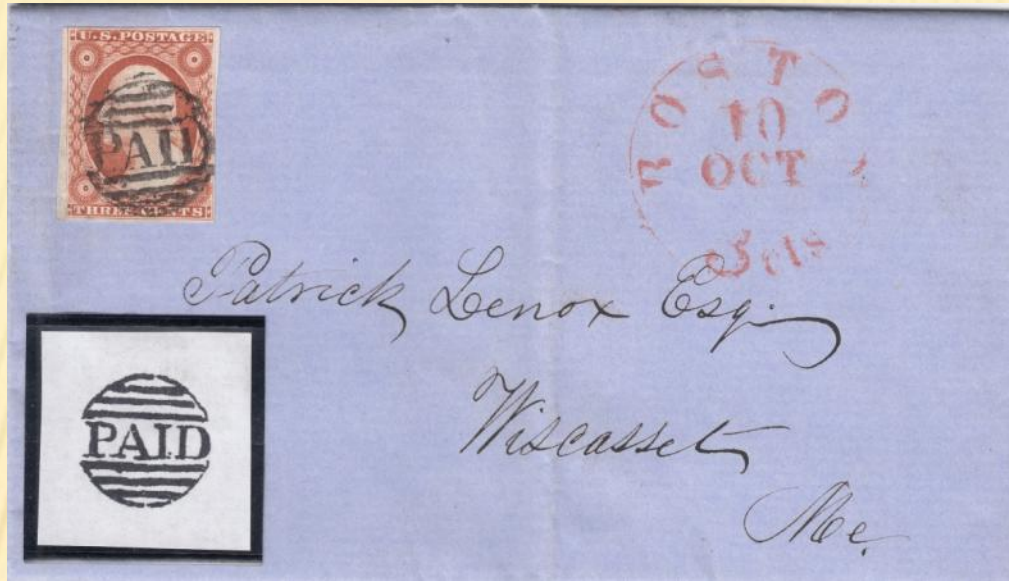 U.S. POSTAGE
PAID
THREE CENTS
BOSTON
10
OCT
3 cts
Patrick Lenox Esq.
Wiscasset
Me.
PAID